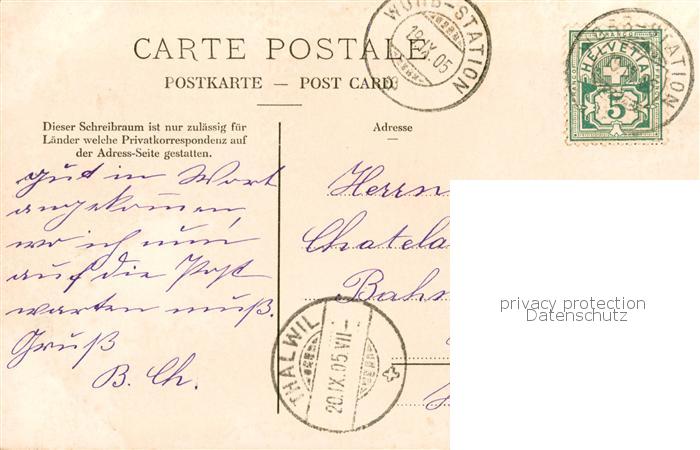 CARTE POSTALE
POSTKARTE — POST CARD
WORB-STATION
19.IX.05
WORB-STATION
HELVETIA
5
Dieser Schreibraum ist nur zulässig für
Länder welche Privatkorrespondenz auf
der Adress-Seite gestatten.
Adresse
gut in Worb
angekommen,
wo ich nun
auf die Post
warten muß.
Gruß
B. Ch.
Herrn
Chatela
Bahn
THALWIL
20.IX.05 VII-
privacy protection
Datenschutz